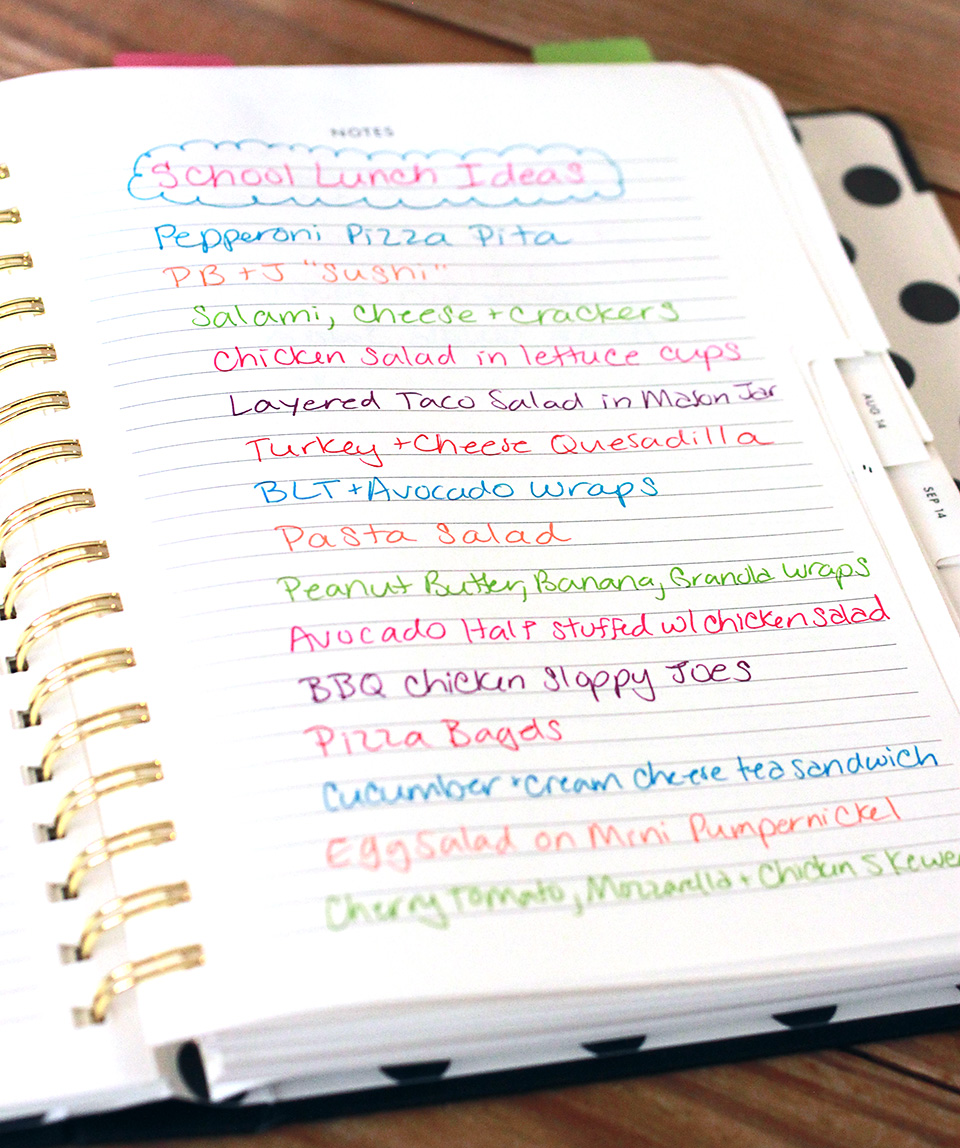 NOTES
School Lunch Ideas
Pepperoni Pizza Pita
PB + J "Sushi"
Salami, Cheese + Crackers
Chicken Salad in lettuce cups
Layered Taco Salad in Mason Jar
Turkey + Cheese Quesadilla
BLT + Avocado Wraps
Pasta Salad
Peanut Butter, Banana, Granola wraps
Avocado Half stuffed w/ chicken salad
BBQ chicken Sloppy Joes
Pizza Bagels
Cucumber + cream cheese tea sandwich
Egg Salad on Mini Pumpernickel
Cherry Tomato, Mozzarella + Chicken Skewe
AUG 14
SEP 14